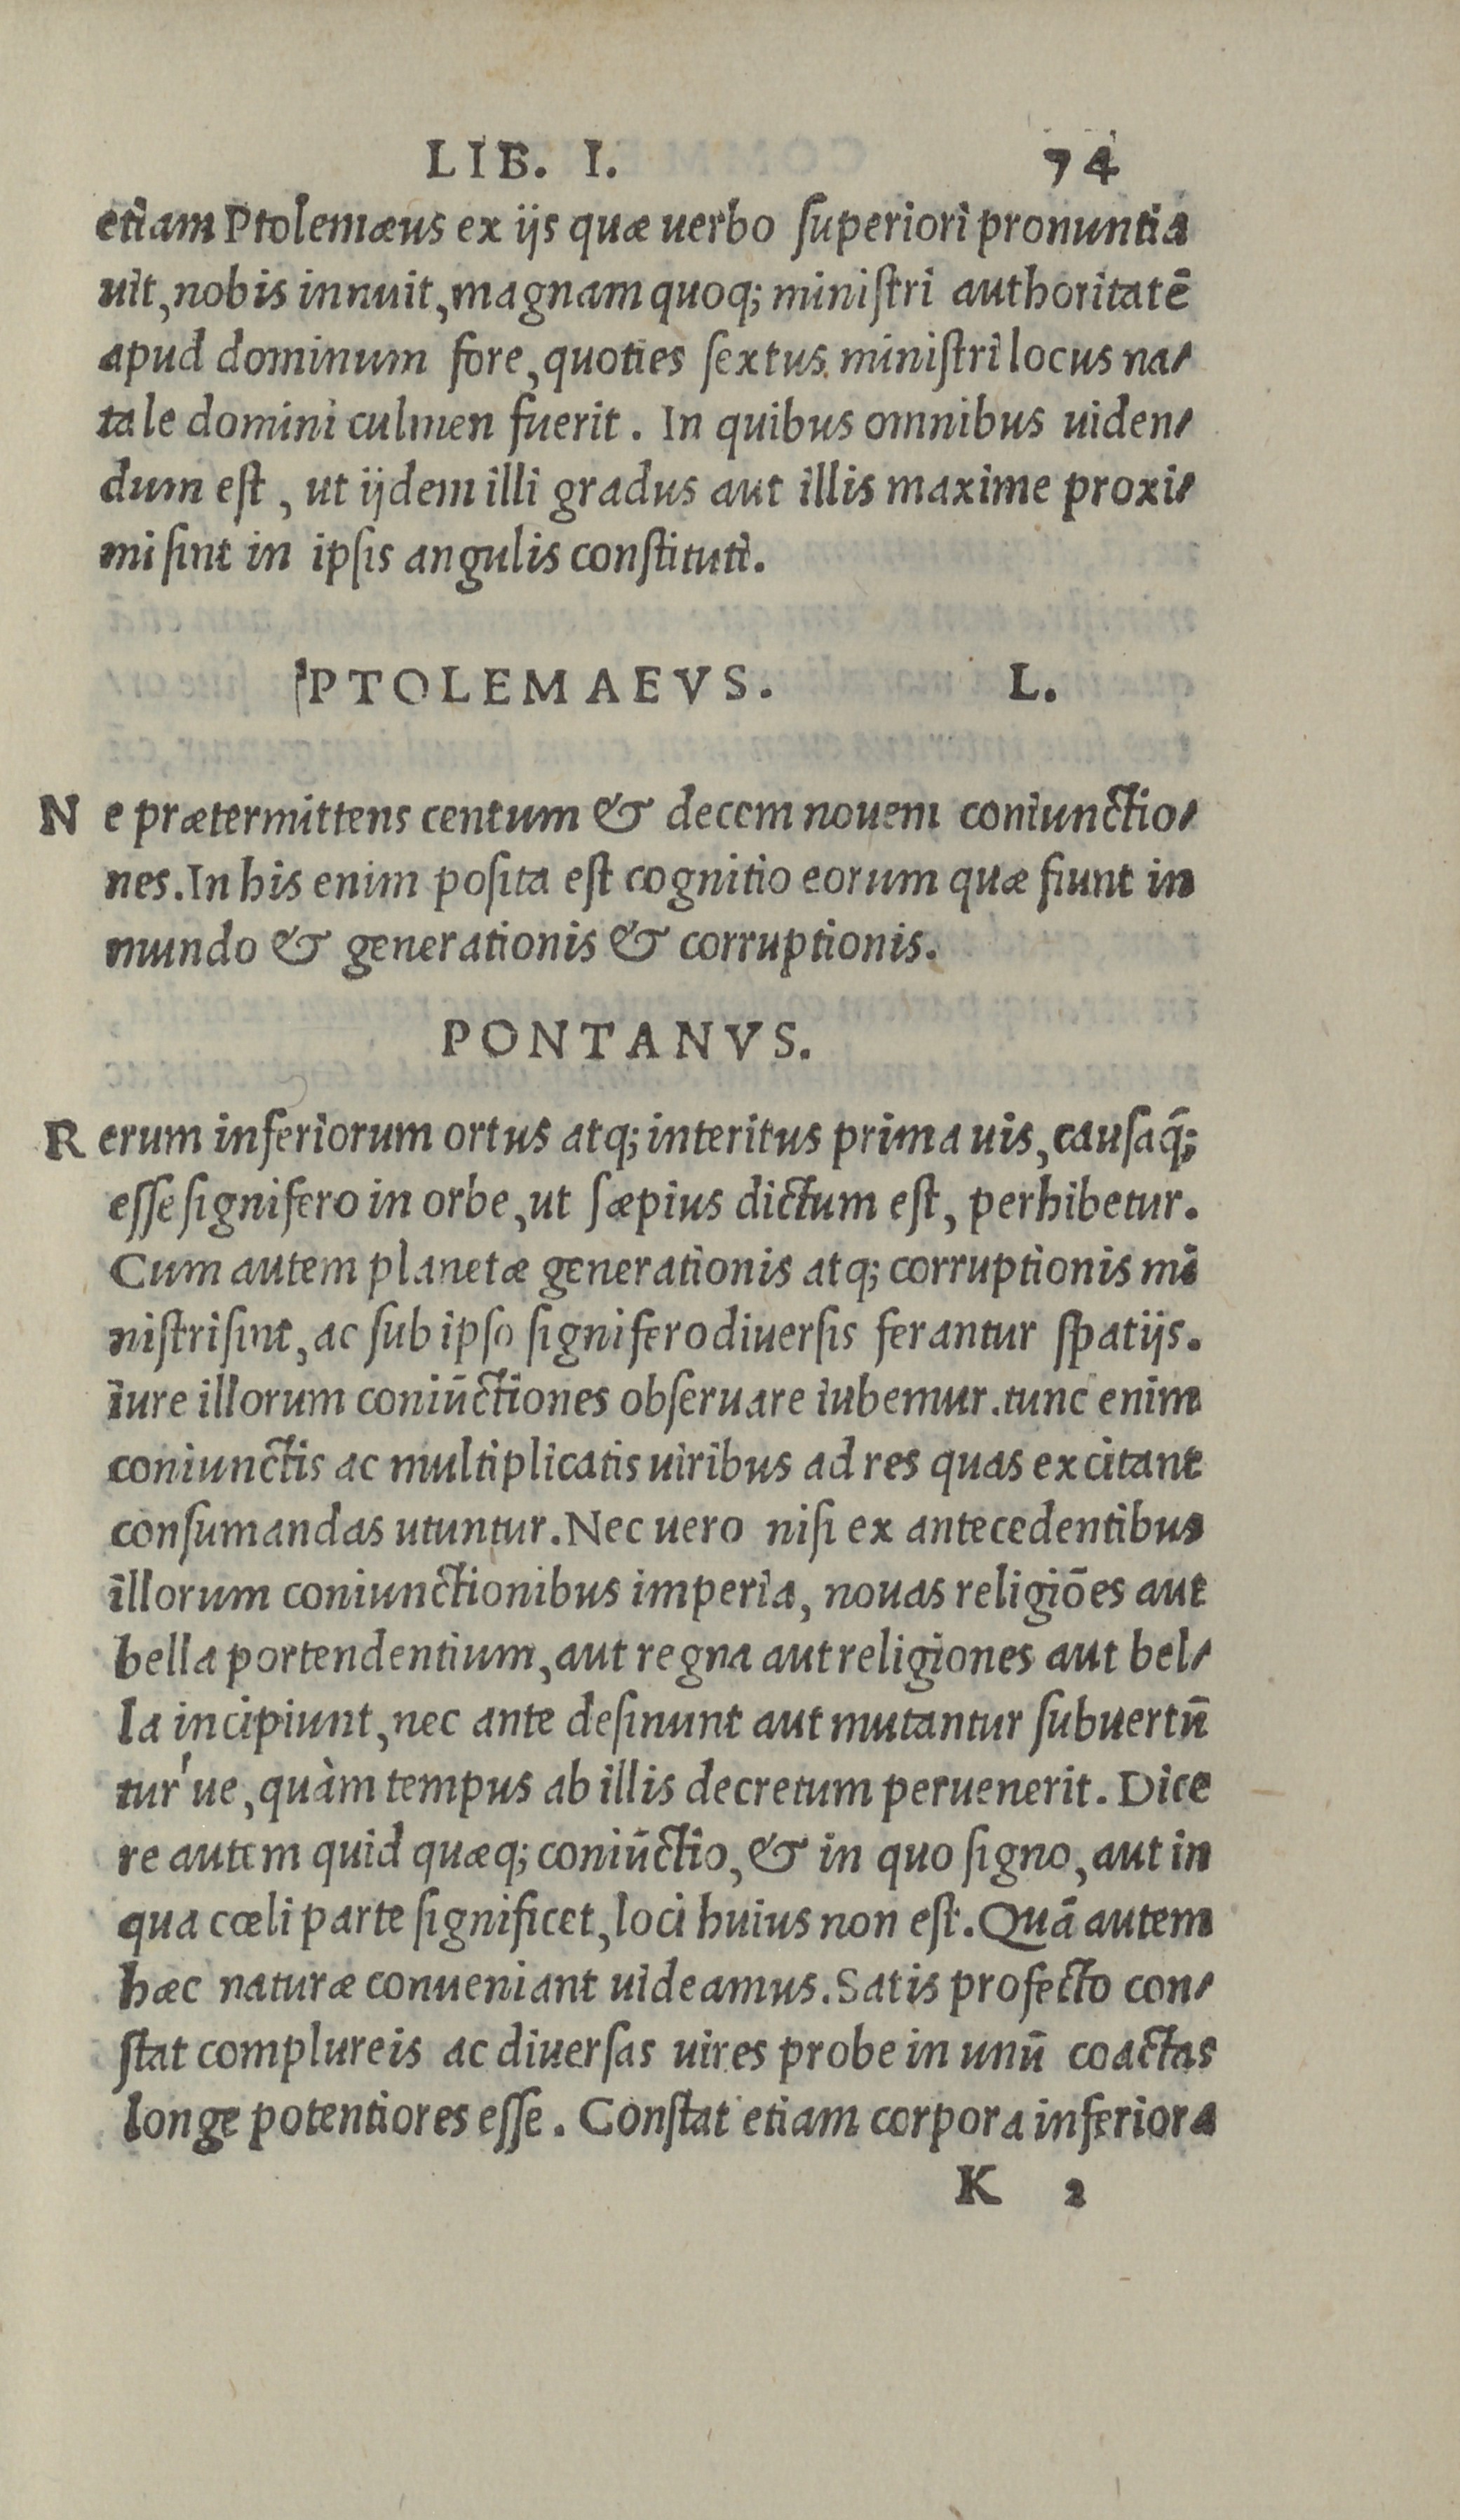 LIB. I. 74
etiam Ptolemæus ex ijs quæ uerbo superiori pronuntia
uit, nobis innuit, magnam quoq; ministri authoritatē
apud dominum fore, quoties sextus ministri locus na-
tale domini culmen fuerit. In quibus omnibus uiden-
dum est, ut ijdem illi gradus aut illis maxime proxi-
mi sint in ipsis angulis constituti.
PTOLEMAEVS. L.
Ne prætermittens centum & decem nouem coniunctio-
nes. In his enim posita est cognitio eorum quæ fiunt in
mundo & generationis & corruptionis.
PONTANVS.
Rerum inferiorum ortus atq; interitus prima uis, causaq̃;
esse signifero in orbe, ut sæpius dictum est, perhibetur.
Cum autem planetæ generationis atq; corruptionis mi
nistri sint, ac sub ipso signifero diuersis ferantur spatijs.
iure illorum coniūctiones obseruare iubemur. tunc enim
coniunctis ac multiplicatis uiribus ad res quas excitant
consumandas utuntur. Nec uero nisi ex antecedentibus
illorum coniunctionibus imperia, nouas religiōes aut
bella portendentium, aut regna aut religiones aut bel-
la incipiunt, nec ante desinunt aut mutantur subuertū
tur'ue, quàm tempus ab illis decretum peruenerit. Dice
re autem quid quæq; coniūctio, & in quo signo, aut in
qua cœli parte significet, loci huius non est. Quā autem
hæc naturæ conueniant uideamus. Satis profecto con-
stat complureis ac diuersas uires probe in unū coactas
longe potentiores esse. Constat etiam corpora inferiora
K 2